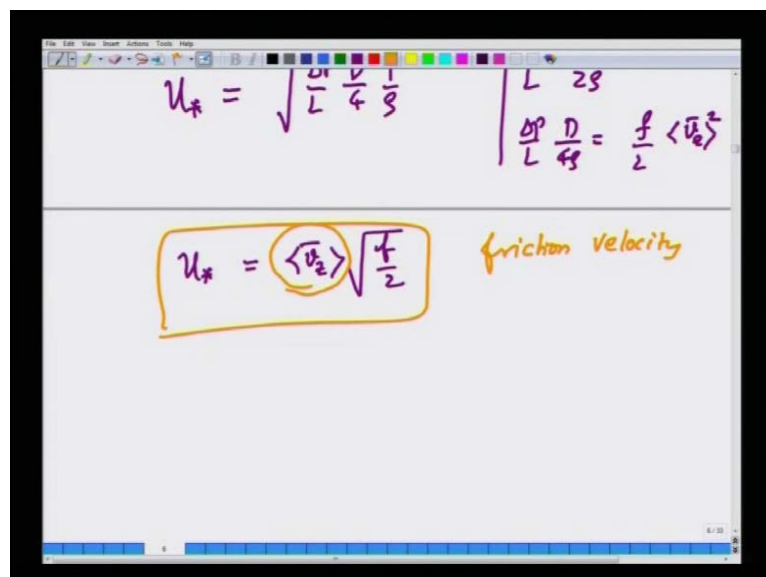 File Edit View Insert Actions Tools Help
L 2ρ
u* = √ΔP/L D/4 1/ρ
ΔP/L D/4ρ = f/2 <v̄z>²
u* = <v̄z> √f/2 friction velocity
6